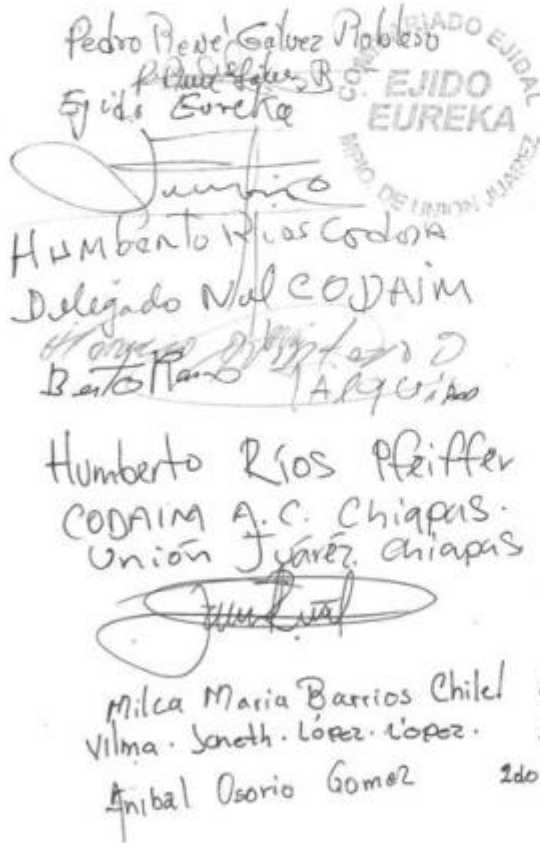 Pedro René Gálvez Robleso
COMISARIADO EJIDAL
EJIDO
EUREKA
MPIO. DE UNION JUAREZ
Ejido Eureka
Humberto Rios Cordova
Delegado Nal CODAIM
Humberto Ríos Pfeiffer
CODAIM A.C. Chiapas.
Unión Juárez. Chiapas
Milca Maria Barrios Chilel
Vilma. Janeth. López. López.
Anibal Osorio Gomez 2do